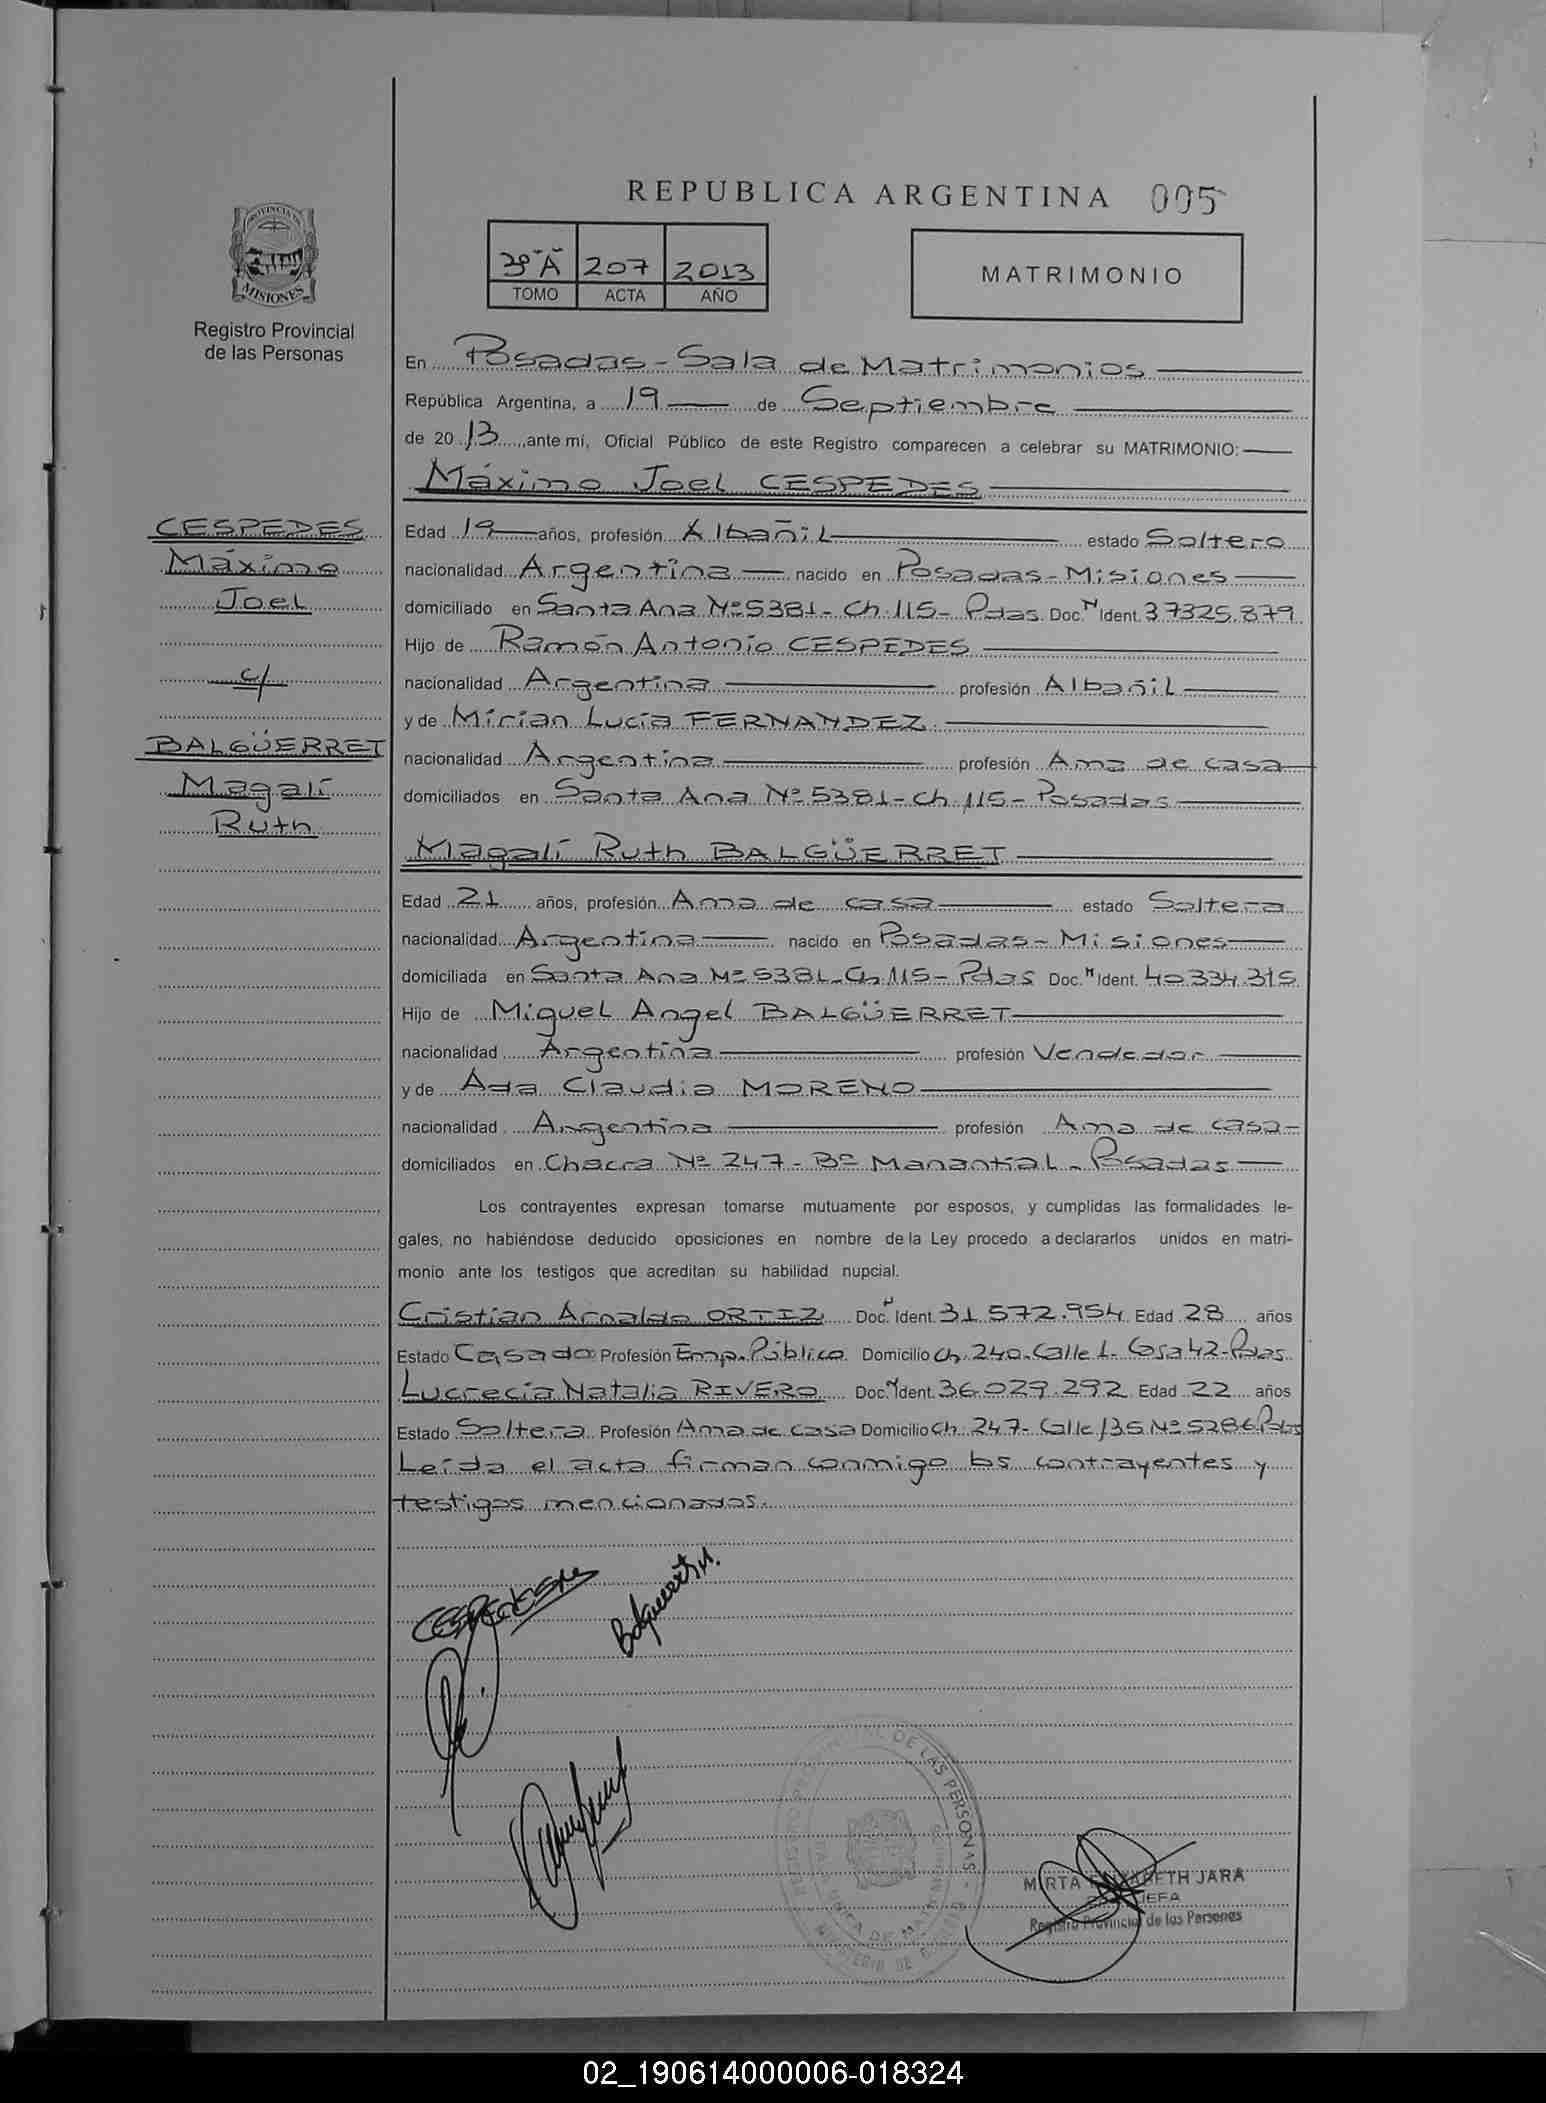 REPUBLICA ARGENTINA 005
PROVINCIA DE
MISIONES
Registro Provincial
de las Personas
3º "A" 207 2013
TOMO ACTA AÑO
MATRIMONIO
En Posadas - Sala de Matrimonios
República Argentina, a 19 de Septiembre
de 2013 ante mí, Oficial Público de este Registro comparecen a celebrar su MATRIMONIO:
Máximo Joel CESPEDES
CESPEDES
Máximo
Joel
c/
BALGÜERRET
Magalí
Ruth
Edad 19 años, profesión Albañil estado Soltero
nacionalidad Argentina nacido en Posadas - Misiones
domiciliado en Santa Ana Nº 5381 - Ch. 115 - Pdas. Doc. N Ident. 37325.879
Hijo de Ramón Antonio CESPEDES
nacionalidad Argentina profesión Albañil
y de Mirian Lucía FERNANDEZ
nacionalidad Argentina profesión Ama de casa
domiciliados en Santa Ana Nº 5381 - Ch. 115 - Posadas
Magalí Ruth BALGÜERRET
Edad 21 años, profesión Ama de casa estado Soltera
nacionalidad Argentina nacido en Posadas - Misiones
domiciliada en Santa Ana Nº 5381 - Ch. 115 - Pdas Doc. N Ident. 40.334.315
Hijo de Miguel Angel BALGÜERRET
nacionalidad Argentina profesión Vendedor
y de Ada Claudia MORENO
nacionalidad Argentina profesión Ama de casa
domiciliados en Chacra Nº 247 - Bº Manantial - Posadas
Los contrayentes expresan tomarse mutuamente por esposos, y cumplidas las formalidades le-
gales, no habiéndose deducido oposiciones en nombre de la Ley procedo a declararlos unidos en matri-
monio ante los testigos que acreditan su habilidad nupcial.
Cristian Arnaldo ORTIZ Doc. N Ident. 31.572.954 Edad 28 años
Estado Casado Profesión Emp. Público Domicilio Ch. 240 - Calle 1 - Casa 42 - Pdas.
Lucrecia Natalia RIVERO Doc. N Ident. 36.029.292 Edad 22 años
Estado Soltera Profesión Ama de casa Domicilio Ch. 247 - Calle 135 Nº 5286 Pdas
Leída el acta firman conmigo los contrayentes y
testigos mencionados.
CESPEDES M
Balguerret M.
REGISTRO PROVINCIAL DE LAS PERSONAS
MIRTA ELIZABETH JARA
JEFA
Registro Provincial de las Personas
02_190614000006-018324